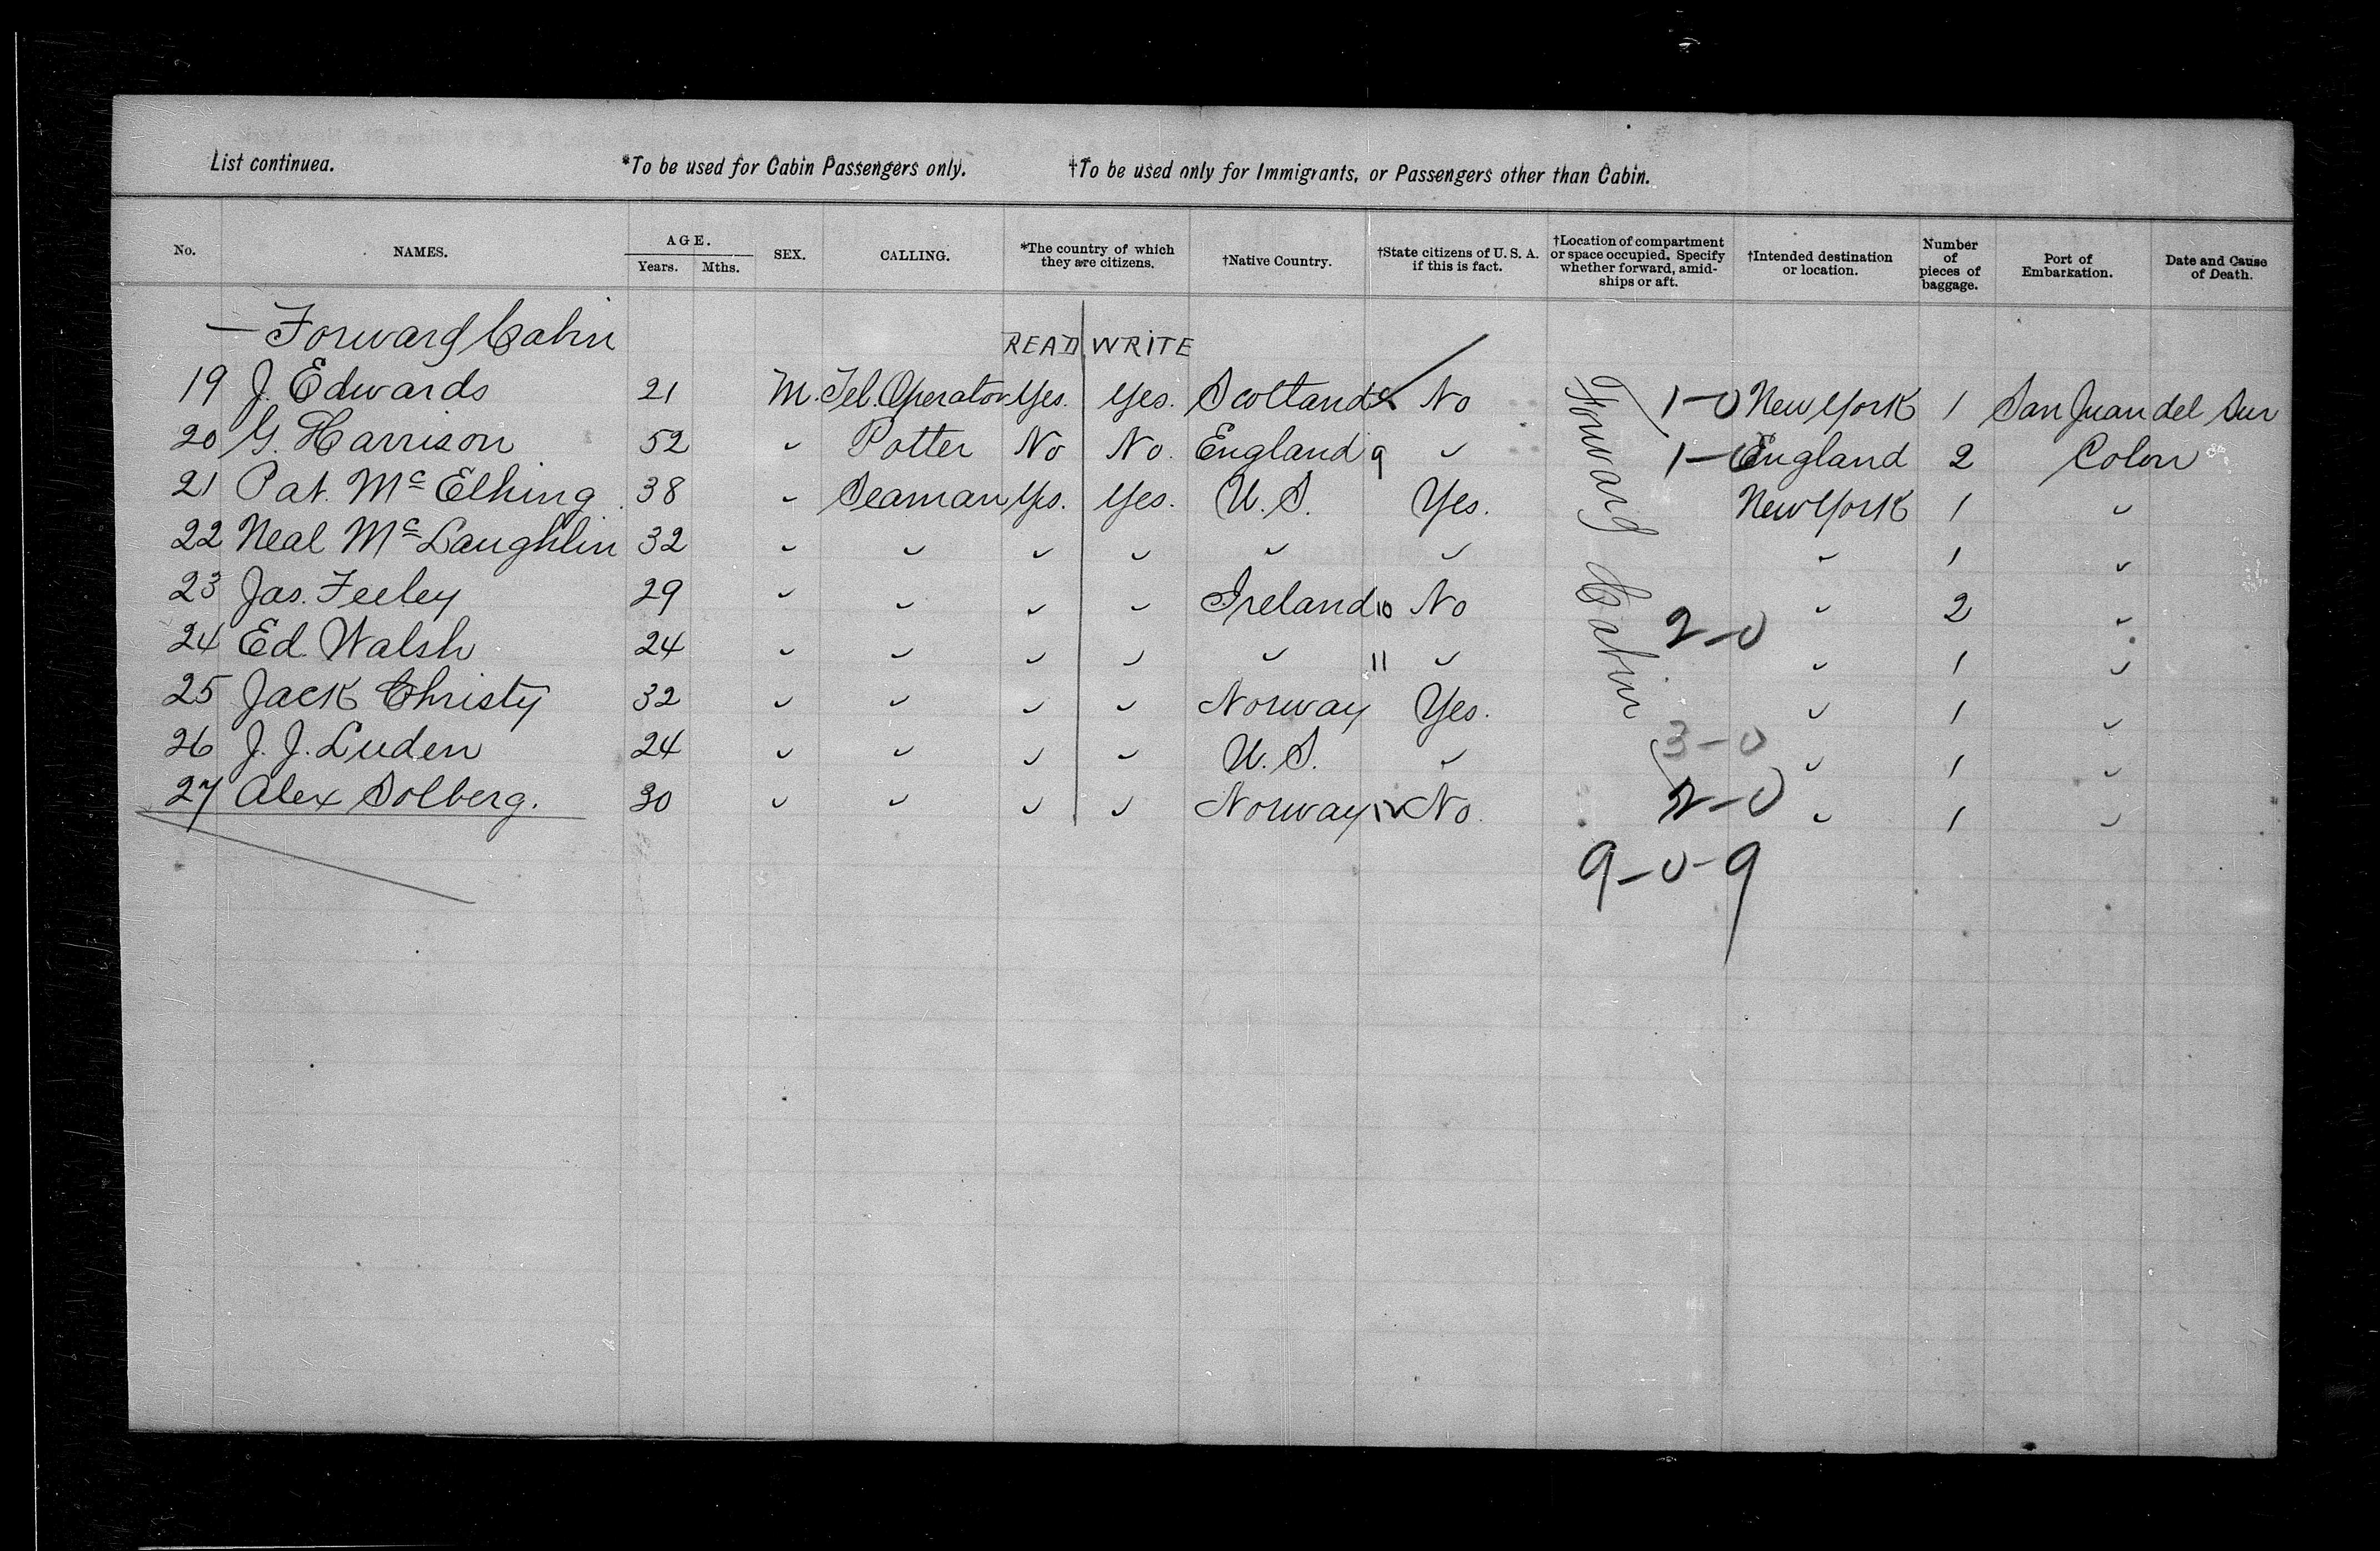 List continued. *To be used for Cabin Passengers only. †To be used only for Immigrants, or Passengers other than Cabin.
No. NAMES. AGE. Years. Mths. SEX. CALLING. *The country of which they are citizens. †Native Country. †State citizens of U. S. A. if this is fact. †Location of compartment or space occupied. Specify whether forward, amidships or aft. †Intended destination or location. Number of pieces of baggage. Port of Embarkation. Date and Cause of Death.
— Forward Cabin READ WRITE
19 J. Edwards 21 M. Tel. Operator Yes. Yes. Scotland No 1-0 New York 1 San Juan del Sur
20 G. Harrison 52 " Potter No No. England 9 " 1-0 England 2 Colon
21 Pat. Mc Elhing 38 " Seaman Yes. Yes. U. S. Yes. New York 1 "
22 Neal Mc Laughlin 32 " " " " " " " 1 "
23 Jas. Feeley 29 " " " " Ireland 10 No " 2 "
24 Ed. Walsh 24 " " " " " 11 " 2-0 " 1 "
25 Jack Christy 32 " " " " Norway Yes. " 1 "
26 J. J. Luden 24 " " " " U. S. " 3-0 " 1 "
27 Alex Solberg. 30 " " " " Norway No. 2-0 " 1 "
Forward Cabin
9-0-9